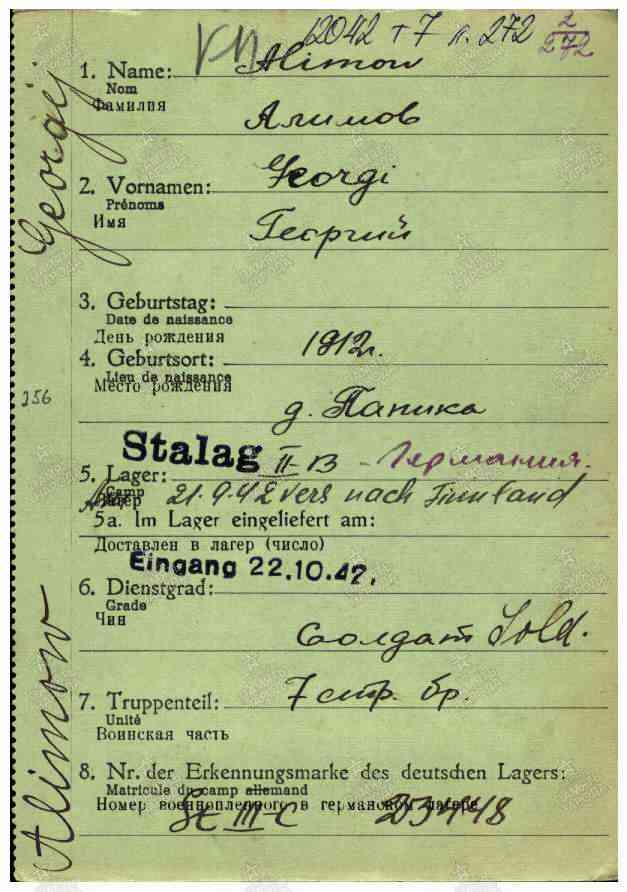 12042 + 7 л. 272 2/272
1. Name: Alimow
Nom
Фамилия
Алимов
2. Vornamen: Georgi
Prénoms
Имя
Георгий
3. Geburtstag:
Date de naissance
День рождения
1912г.
4. Geburtsort:
Lieu de naissance
Место рождения
д. Паника
Stalag II-B - Германия.
5. Lager:
Camp
Лагер
21.9.42 vers nach Finnland
5a. Im Lager eingeliefert am:
Доставлен в лагер (число)
Eingang 22.10.42.
6. Dienstgrad:
Grade
Чин
Солдат Sold.
7 стр. бр.
7. Truppenteil:
Unité
Воинская часть
8. Nr. der Erkennungsmarke des deutschen Lagers:
Matricule du camp allemand
Номер военнопленного в германском лагере
St III-C
Georgij
Alimow
256